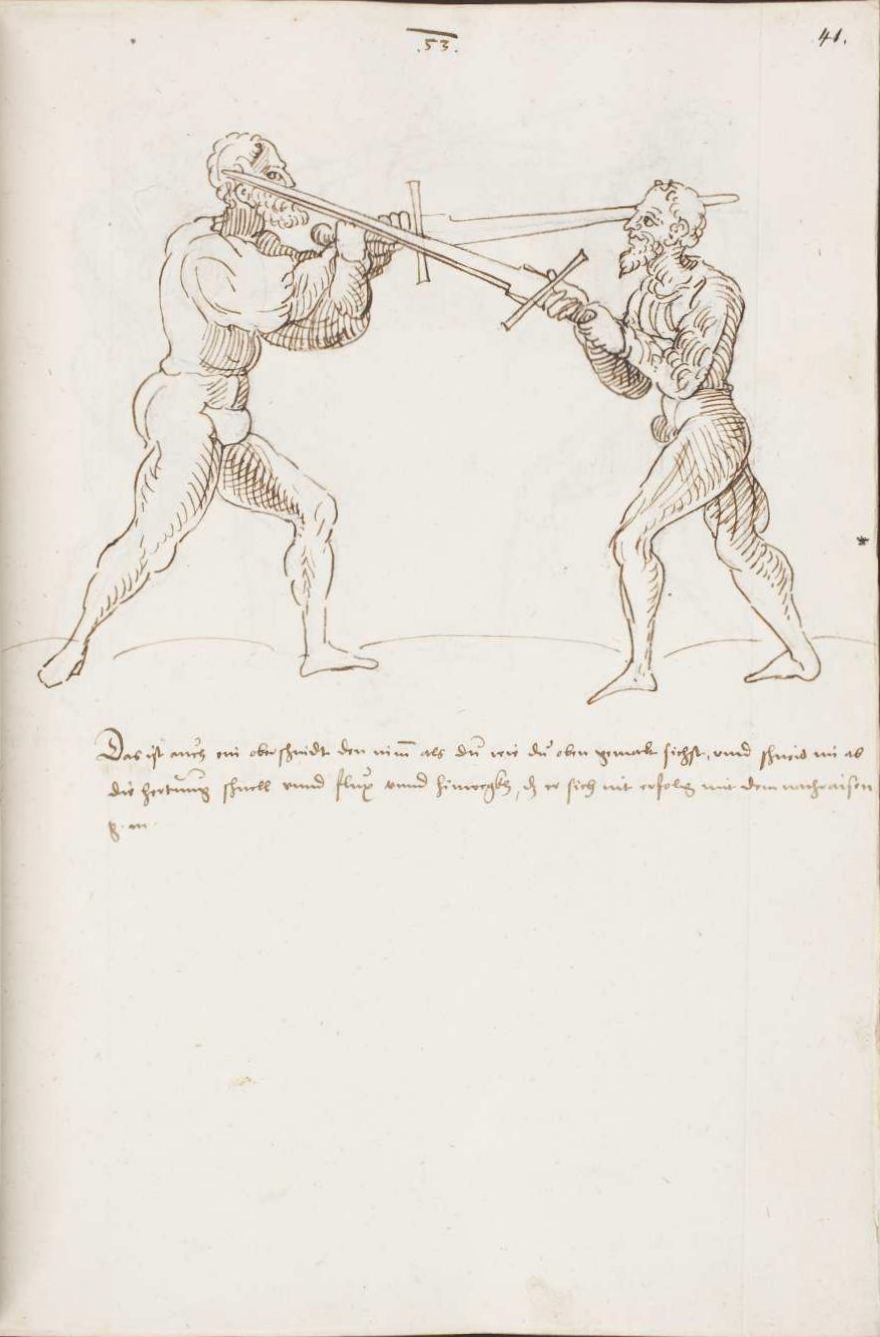 .53.
41.
Das ist auch ein ober schnidt den nim̄ als du wie du oben gemalt sichst, vnnd schneid im ab
die hertung schnell vnnd flux vnnd hinwegkh, dz er sich nit erholg mit dem nachraisen